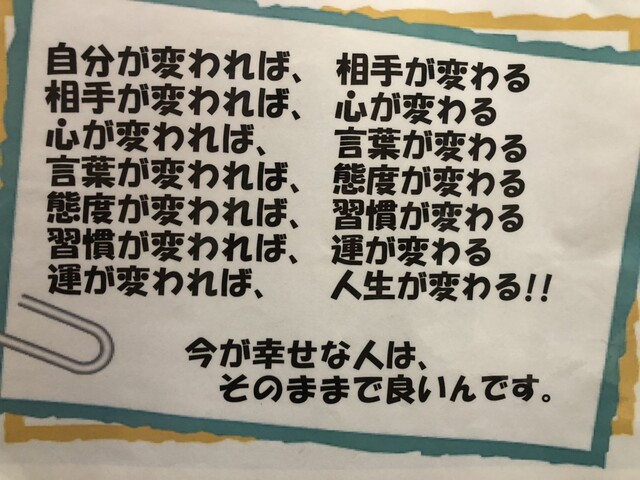 自分が変われば、 相手が変わる
相手が変われば、 心が変わる
心が変われば、 言葉が変わる
言葉が変われば、 態度が変わる
態度が変われば、 習慣が変わる
習慣が変われば、 運が変わる
運が変われば、 人生が変わる!!
今が幸せな人は、
そのままで良いんです。